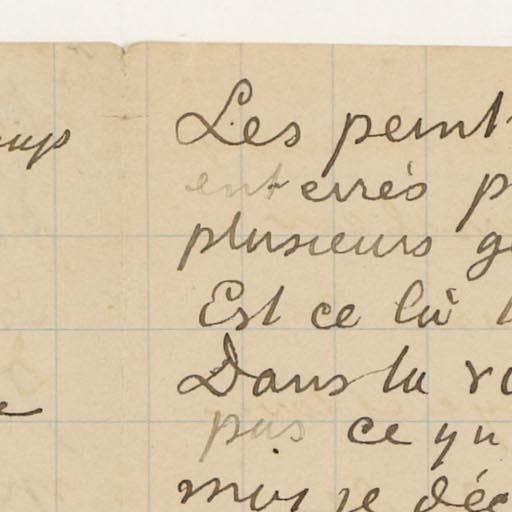 Les peint
enterrés p
plusieurs gé
Est ce là
Dans la v
pas ce qu
mais je déc